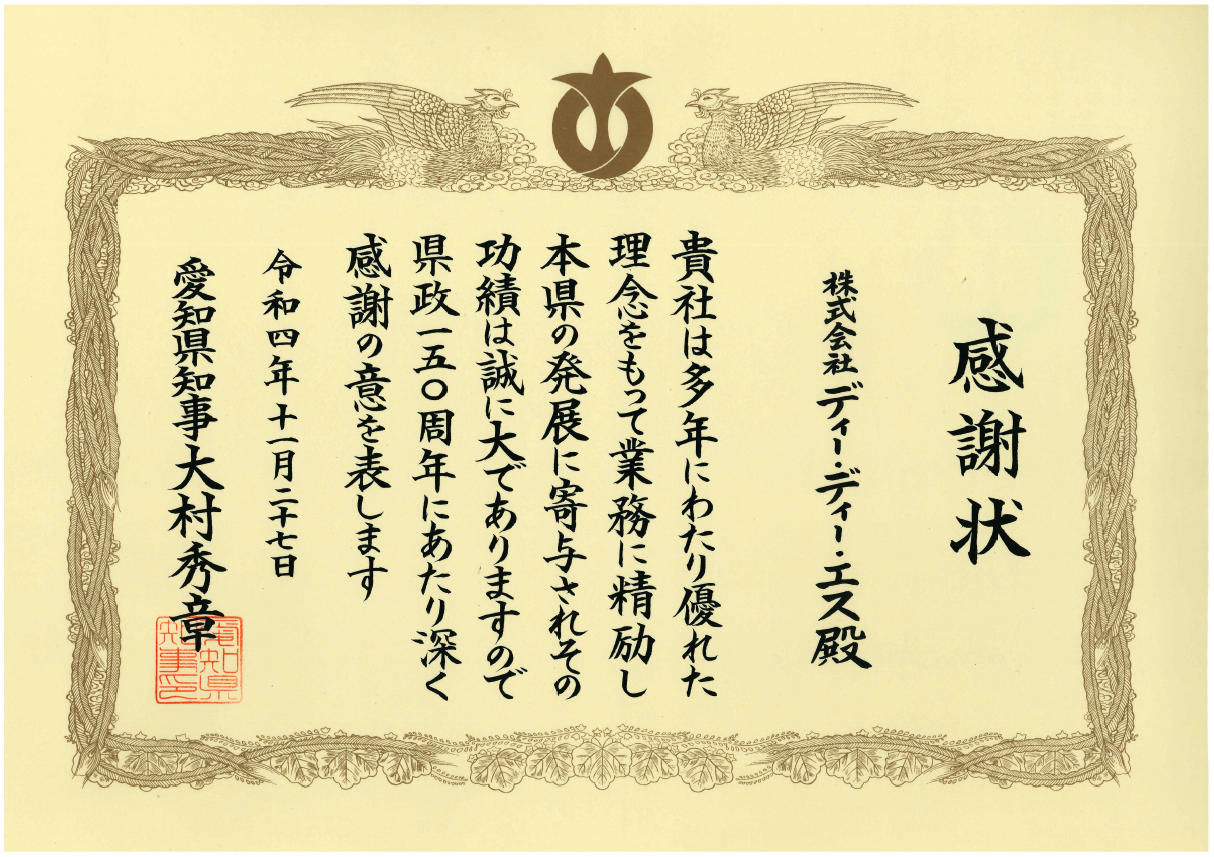 感謝状
株式会社ディー・ディー・エス殿
貴社は多年にわたり優れた
理念をもって業務に精励し
本県の発展に寄与されその
功績は誠に大でありますので
県政一五〇周年にあたり深く
感謝の意を表します
令和四年十一月二十七日
愛知県知事大村秀章
愛知県
知事之印